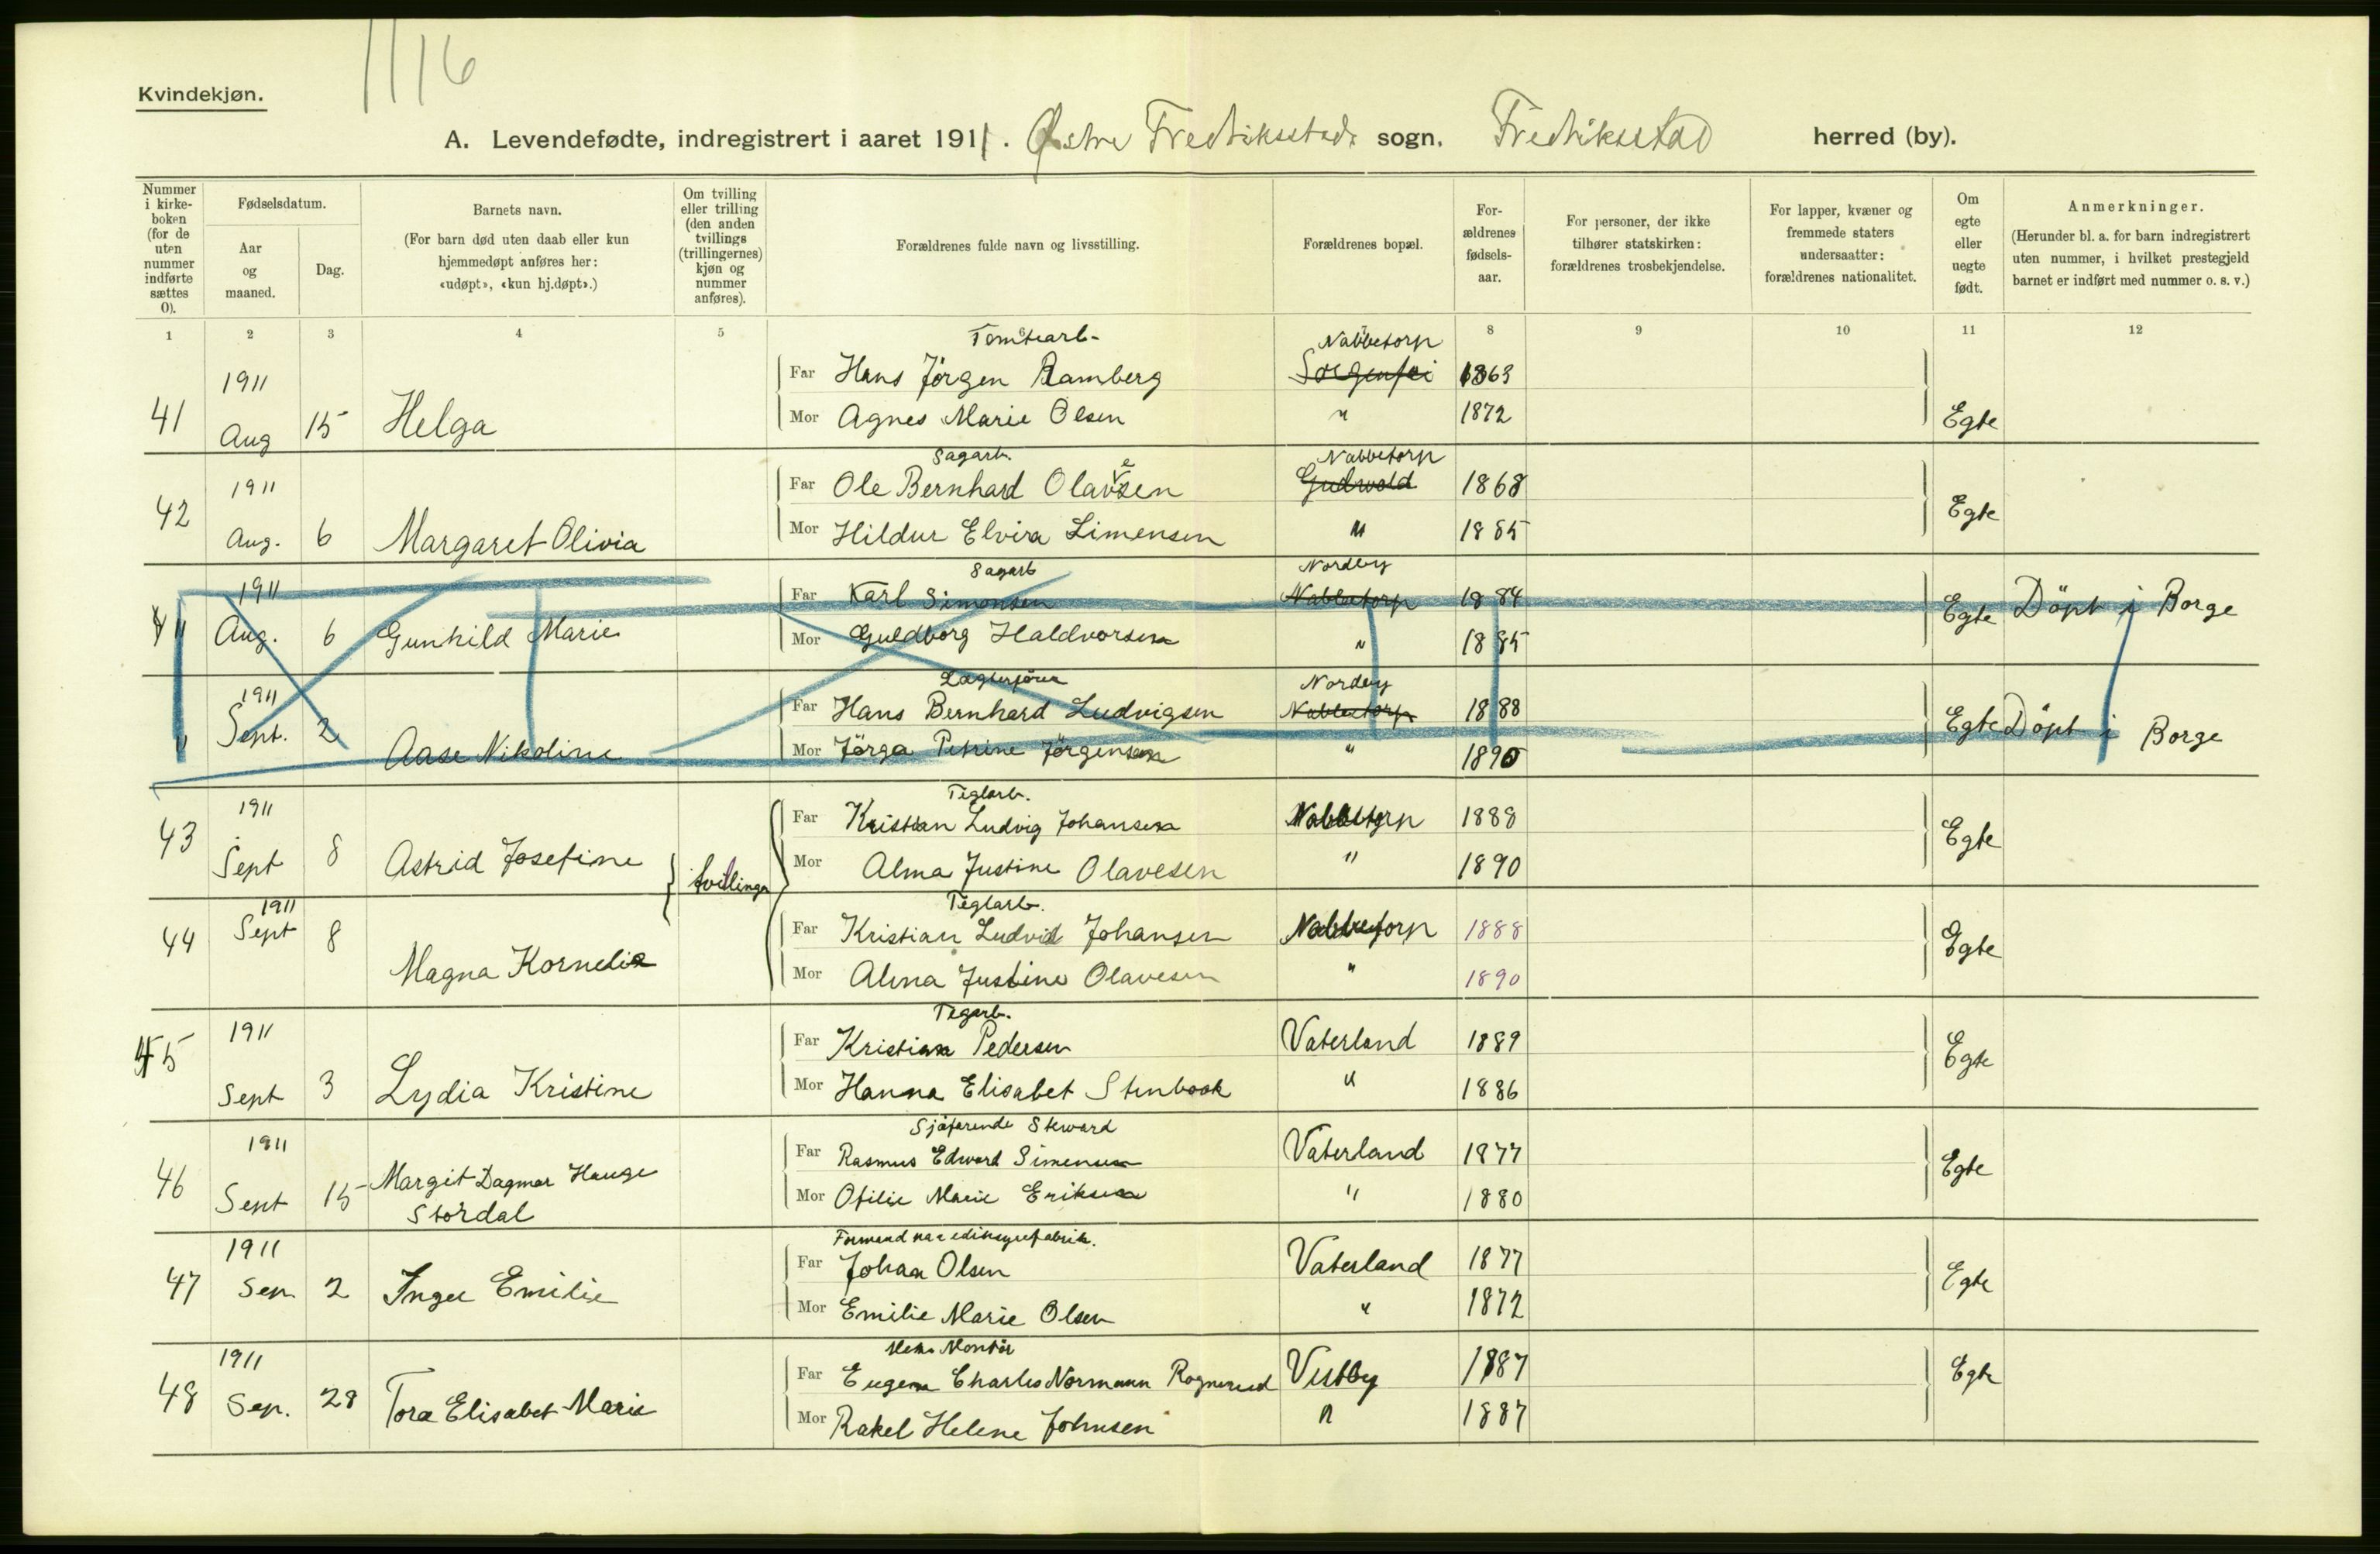 1116
Kvindekjøn.
A. Levendefødte, indregistrert i aaret 1911. Østre Fredriksstads sogn. Fredriksstad herred (by).
Nummer i kirke-boken (for de uten nummer indførte sættes 0).
Fødselsdatum.
Aar og maaned.
Dag.
Barnets navn.
(For barn død uten daab eller kun hjemmedøpt anføres her: «udøpt», «kun hj.døpt».)
Om tvilling eller trilling (den anden tvillings (trillingernes) kjøn og nummer anføres).
Forældrenes fulde navn og livsstilling.
Forældrenes bopæl.
For-ældrenes fødsels-aar.
For personer, der ikke tilhører statskirken: forældrenes trosbekjendelse.
For lapper, kvæner og fremmede staters undersaatter: forældrenes nationalitet.
Om egte eller uegte født.
Anmerkninger.
(Herunder bl. a. for barn indregistrert uten nummer, i hvilket prestegjeld barnet er indført med nummer o. s. v.)
1 2 3 4 5 6 8 9 10 11 12
Tomtearb. Nabbetorp
1911 Far Hans Jörgen Ramberg Sorgenfri 1863
41 Aug 15 Helga Mor Agnes Marie Olsen " 1872 Egte
Sagarb. Nabbetorp
1911 Far Ole Bernhard Olavesen Gudvold 1868
42 Aug. 6 Margaret Olivia Mor Hildur Elvira Simensen " 1885 Egte
Sagarb Nordby
1911 Far Karl Simonsen Nabbetorp 1884
" Aug. 6 Gunhild Marie Mor Guldborg Haldvorsen " 1885 Egte Döpt i Borge
Nordby
1911 Far Hans Bernhard Ludvigsen Nabbetorp 1888
" Sept. 2 Aase Nikoline Mor Jörga Petrine Jörgensen " 1890 Egte Döpt i Borge
Teglarb.
1911 Far Kristian Ludvig Johansen Nabbetorp 1888
43 Sept 8 Astrid Josefine tvillinger Mor Alma Justine Olavesen " 1890 Egte
Teglarb.
1911 Far Kristian Ludvid Johansen Nabbetorp 1888
44 Sept 8 Magna Kornelia Mor Alma Justine Olavesen " 1890 Egte
Tegarb.
1911 Far Kristian Pedersen Vaterland 1889
45 Sept 3 Lydia Kristine Mor Hanna Elisabet Stenbock " 1886 Egte
Sjøfarende Steward
1911 Far Rasmus Edvard Simensen Vaterland 1877
46 Sept 15 Margit Dagmar Hauge Stordal Mor Otilie Marie Eriksen " 1880 Egte
Formand paa ediksyrefabrik.
1911 Far Johan Olsen Vaterland 1877
47 Sep. 2 Inger Emilie Mor Emilie Marie Olsen " 1872 Egte
Mek. Montör
1911 Far Eugen Charles Normann Rognerud Vestby 1887
48 Sep. 28 Tora Elisabet Marie Mor Rakel Helene Johnsen " 1887 Egte